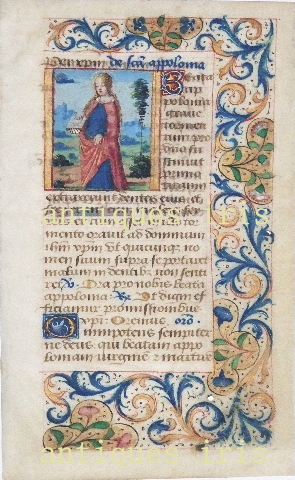 de scā appolonia
Beata
ap
polonia
grave
tormen
tum pro
primo
fuerunt dentes eius et
antiques iris
mento oravit ad dominum
ihm xpm ut quicunque no
men suum supra se portaret
malum in dentibus non senti
ret ℣. Ora pro nobis beata
appolonia ℟. Ut digni ef
ficiamur promissionibus
xpi. Oremus oro
Omnipotens sempiter
ne deus qui beatam appo
loniam virginem et martire
antiques iris